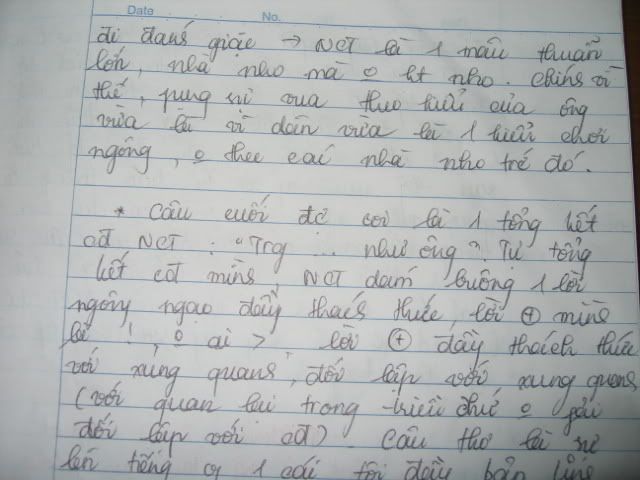 Date No.
đi đánh giặc → NCT là 1 mâu thuẫn
lớn, nhà nho mà o ht nho. Chính vì
thế, phụng sự vua theo kiểu của ông
vừa là vì dân vừa là 1 kiểu chơi
ngông, o theo cái nhà nho trẻ đó.
* Câu cuối đc coi là 1 tổng kết
cđ NCT : "Trg ... như ông". Tự tổng
kết cđ mình, NCT dám buông 1 lời
ngông ngạo đầy thách thức, lời ⊕ mình
là !, o ai > lời ⊕ đầy thách thức
với xung quanh, đối lập với xung quanh
(với quan lại trong triều chứ o phải
đối lập với cđ). Câu thơ là sự
lên tiếng of 1 cái tôi đầy bản lĩnh